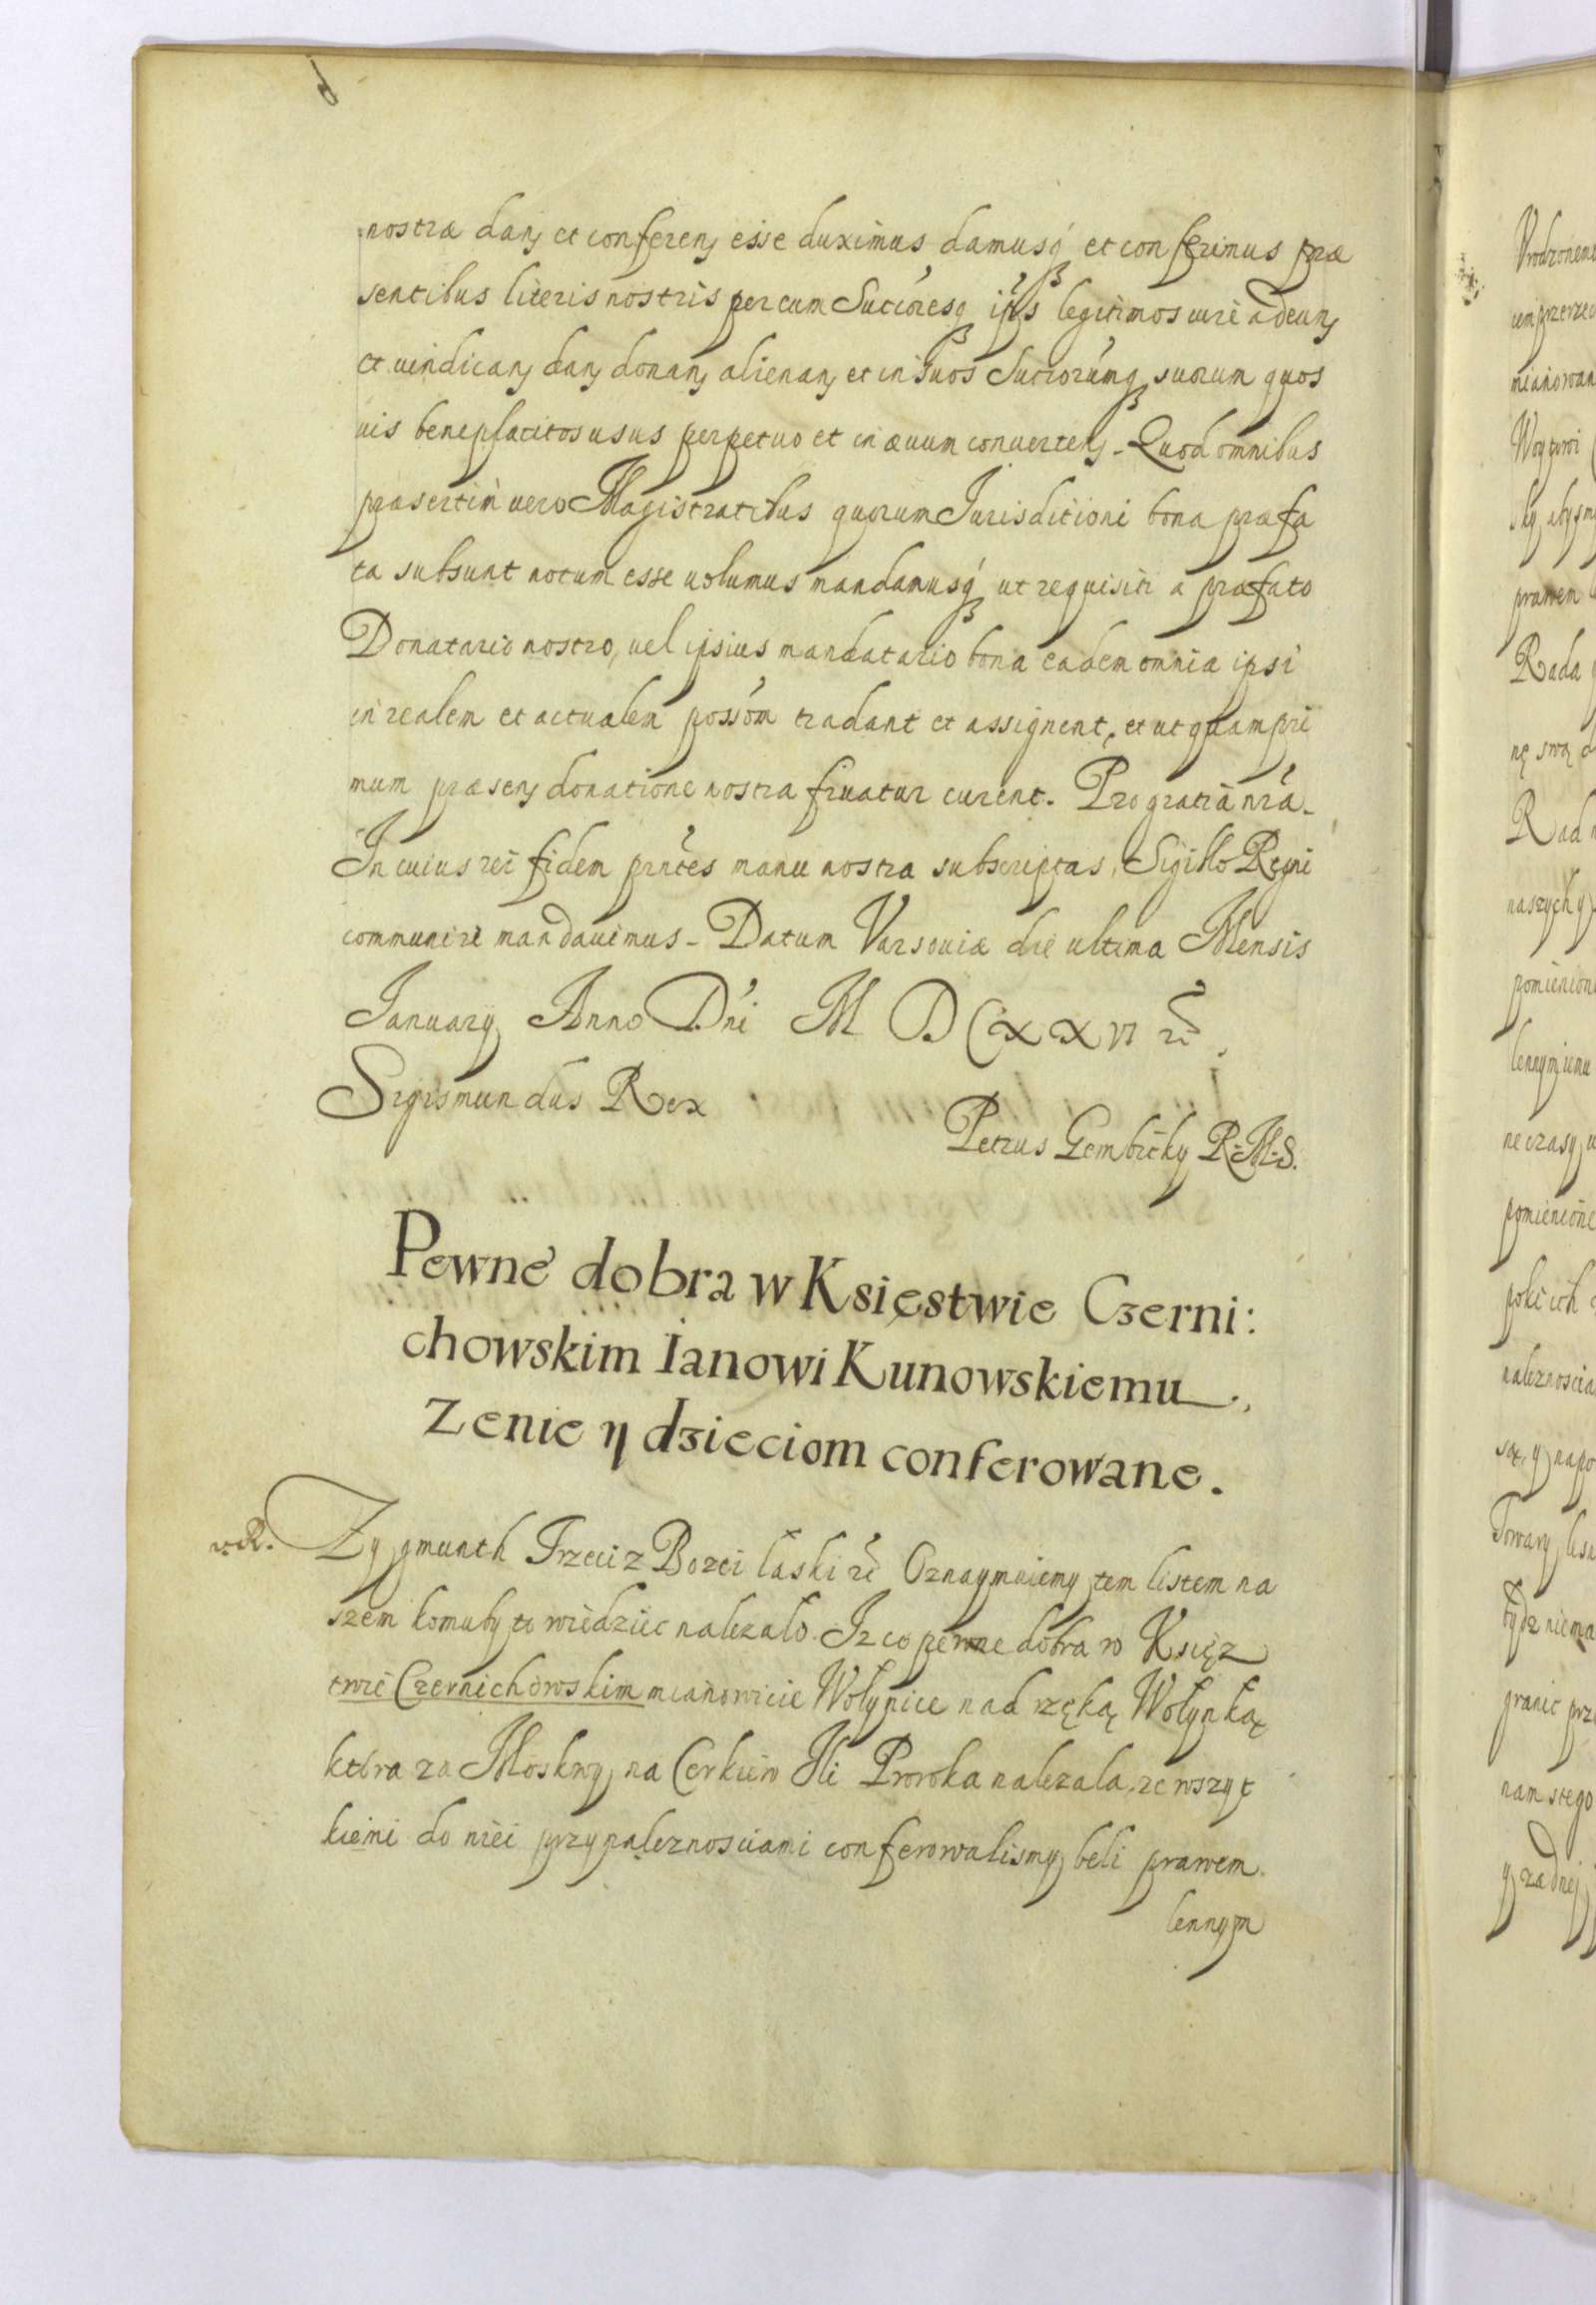 nostræ dans et conferens esse duximus damusq́ et conferimus præ
sentibus literis nostris per eum Succóresq ipś legitimos iure adeuns
et uindicans dans donans alienans et in suos Succorúmq suorum quos
uis beneplacitos usus perpetuo et in æuum conuertens. Quod omnibus
præsertim uero Magistratibus quorum Jurisditioni bona præfa
ta subsunt notum esse uolumus mandamusq́ ut requisiti a præfato
Donatario nostro, uel ipsius mandatario bona eadem omnia ipsi
in realem et actualem possóm tradant et assignent, et ut quampri
mum præsens donatione nostra fruatur curent. Pro gratia nrá.
In cuius rei fidem prntés manu nostra subscriptas, Sigillo Regni
communire mandauimus. Datum Varsouiæ die ultima Mensis
Januarij Anno Dńi M D C x x vi
Sigismundus Rex
Petrus Gembicky R. M. S.
Pewne dobra w Księstwie Czerni:
chowskim Ianowi Kunowskiemu,
Zenie y dzieciom conferowane.
Zygmunth Trzeci z Bozei łaski Oznaymuiemy tem listem na
szem komuby to wiedziec nalezało. Iz co pewne dobra w Księz
twie Czernichowskim mianowicie Wołynice nad rzęką Wołynką
ktora za Moskwy na Cerkiew Ili Proroka nalezala, ze wszyt
kiemi do niei przynaleznosciami conferowalismy beli prawem
lennym
Rada
nę swą
naszych y
pomienione
ne czasy
pomienione